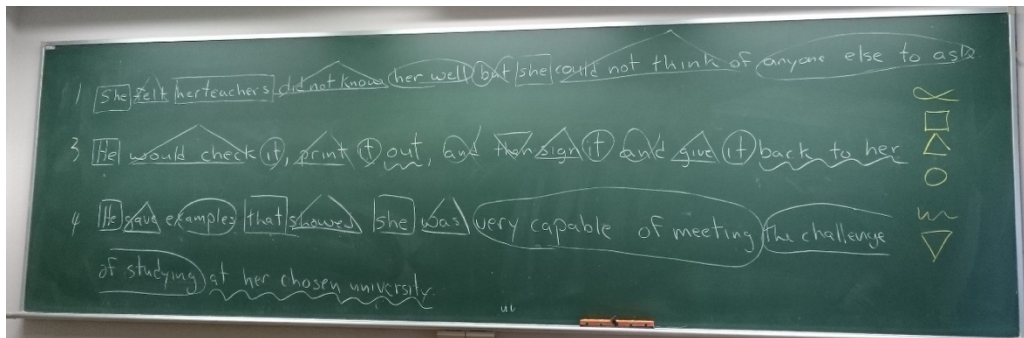 1 She felt her teachers did not know her well but she could not think of anyone else to ask
3 He would check it, print it out, and then sign it and give it back to her
4 He gave examples that showed she was very capable of meeting the challenge
of studying at her chosen university